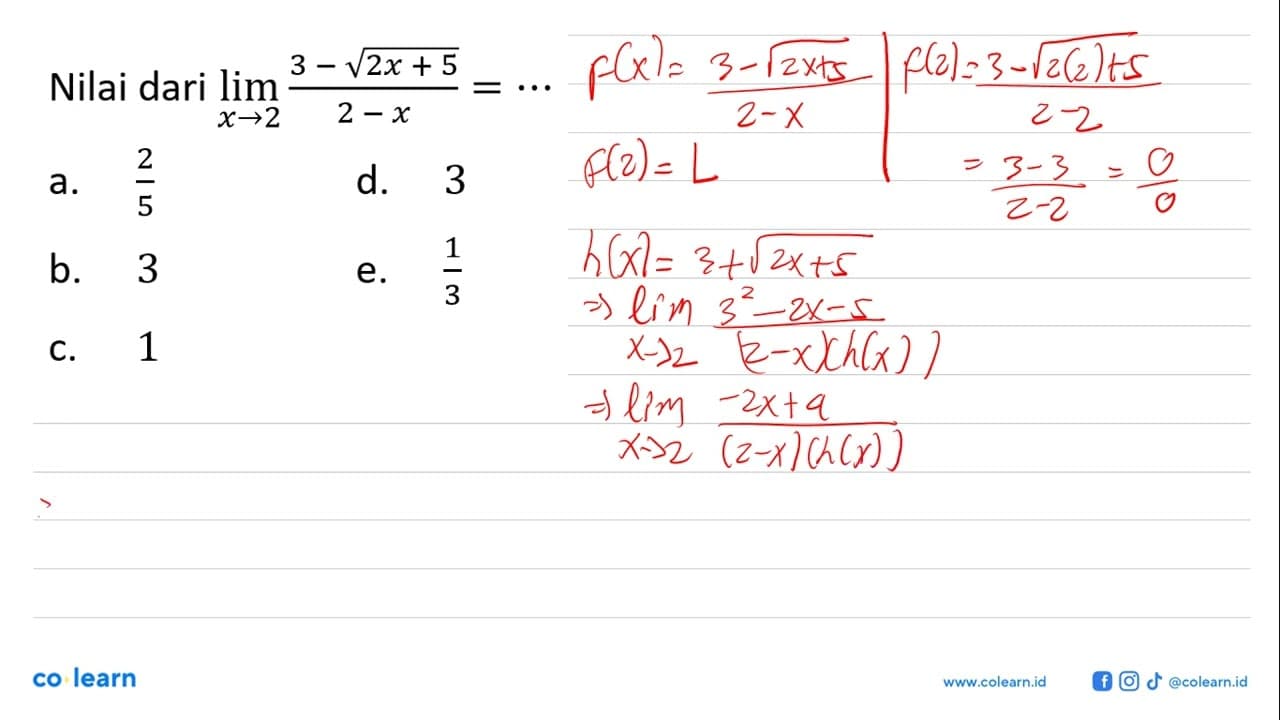 Nilai dari lim x→2 (3 − √(2x + 5))/(2 − x) = ...
a. 2/5
b. 3
c. 1
d. 3
e. 1/3
f(x) = (3 − √(2x+5))/(2 − x)
f(2) = L
f(2) = (3 − √(2(2)+5))/(2 − 2)
= (3 − 3)/(2 − 2) = 0/0
h(x) = 3 + √(2x+5)
⇒ lim x→2 (3² − 2x − 5)/((2 − x)(h(x)))
⇒ lim x→2 (−2x + 9)/((2 − x)(h(x)))
co learn
www.colearn.id
@colearn.id